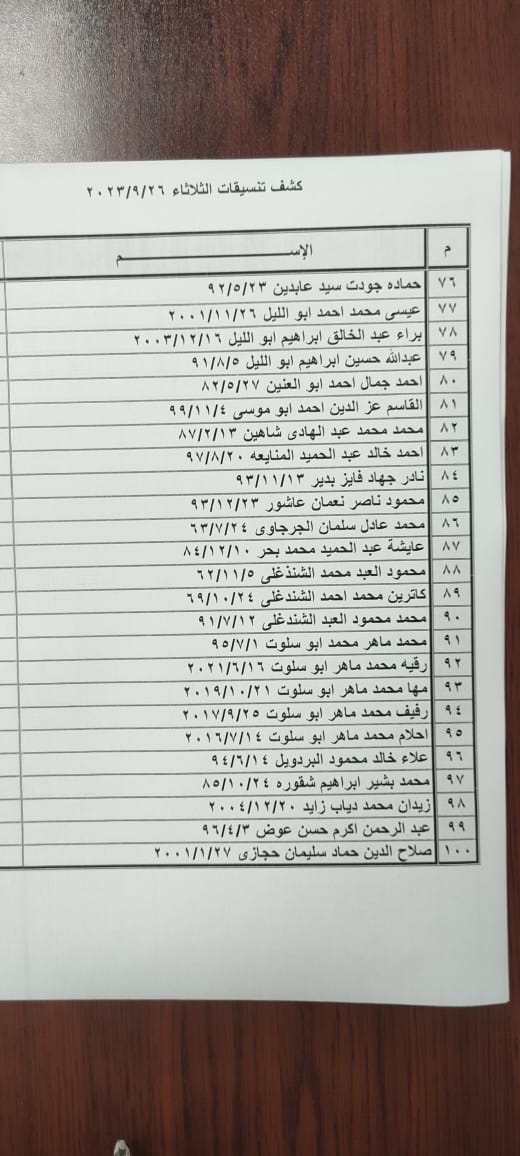 كشف تنسيقات الثلاثاء ٢٠٢٣/٩/٢٦
م الإســـــــــم
٧٦ حماده جودت سيد عابدين ٩٢/٥/٢٣
٧٧ عيسى محمد احمد ابو الليل ٢٠٠١/١١/٢٦
٧٨ براء عبد الخالق ابراهيم ابو الليل ٢٠٠٣/١٢/١٦
٧٩ عبدالله حسين ابراهيم ابو الليل ٩١/٨/٥
٨٠ احمد جمال احمد ابو العنين ٨٢/٥/٢٧
٨١ القاسم عز الدين احمد ابو موسى ٩٩/١١/٤
٨٢ محمد محمد عبد الهادى شاهين ٨٧/٢/١٣
٨٣ احمد خالد عبد الحميد المنايعه ٩٧/٨/٢٠
٨٤ نادر جهاد فايز بدير ٩٣/١١/١٣
٨٥ محمود ناصر نعمان عاشور ٩٣/١٢/٢٣
٨٦ محمد عادل سلمان الجرجاوى ٦٣/٧/٢٤
٨٧ عايشة عبد الحميد محمد بحر ٨٤/١٢/١٠
٨٨ محمود العبد محمد الشنذغلى ٦٢/١١/٥
٨٩ كاترين محمد احمد الشندغلى ٦٩/١٠/٢٤
٩٠ محمد محمود العبد الشندغلى ٩١/٧/١٢
٩١ محمد ماهر محمد ابو سلوت ٩٥/٧/١
٩٢ رقيه محمد ماهر ابو سلوت ٢٠٢١/٦/١٦
٩٣ مها محمد ماهر ابو سلوت ٢٠١٩/١٠/٢١
٩٤ رفيف محمد ماهر ابو سلوت ٢٠١٧/٩/٢٥
٩٥ احلام محمد ماهر ابو سلوت ٢٠١٦/٧/١٤
٩٦ علاء خالد محمود البردويل ٩٤/٦/١٤
٩٧ محمد بشير ابراهيم شقوره ٨٥/١٠/٢٤
٩٨ زيدان محمد دياب زايد ٢٠٠٤/١٢/٢٠
٩٩ عبد الرحمن اكرم حسن عوض ٩٦/٤/٣
١٠٠ صلاح الدين حماد سليمان حجازى ٢٠٠١/١/٢٧